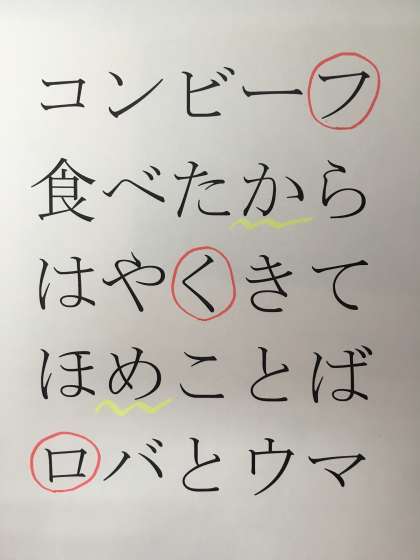 コンビーフ
食べたから
はやくきて
ほめことば
ロバとウマ